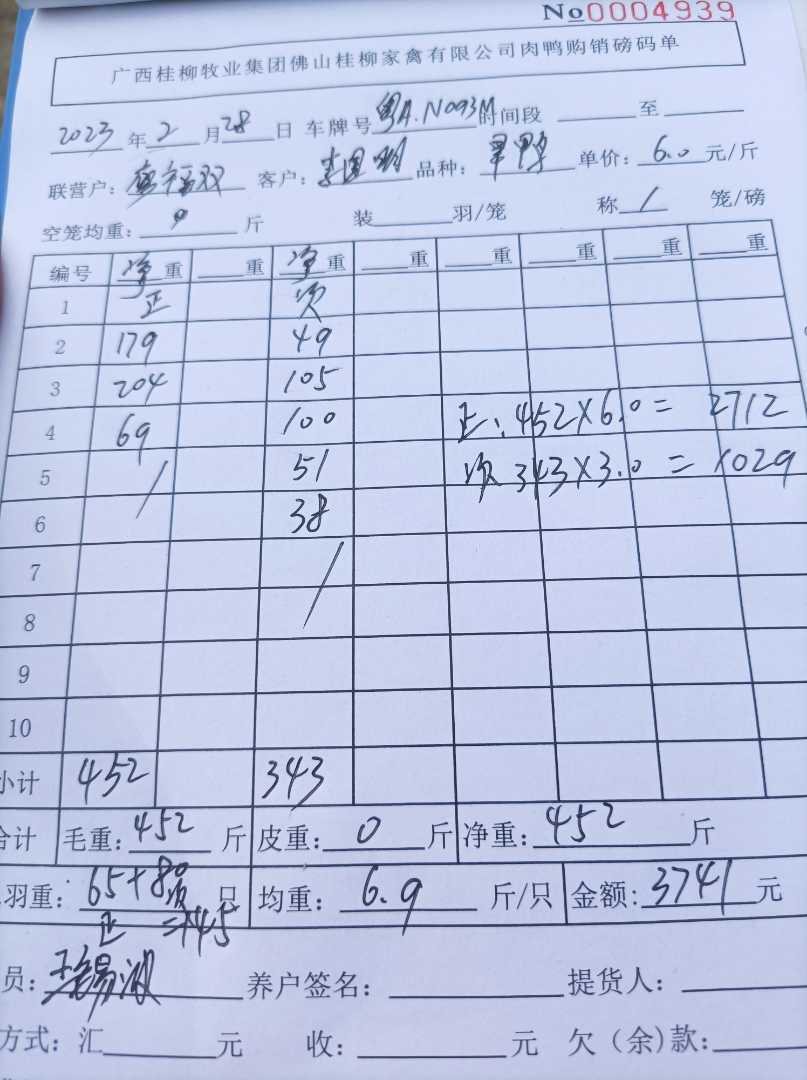 No0004939
广西桂柳牧业集团佛山桂柳家禽有限公司肉鸭购销磅码单
2023年2月28日 车牌号粤A.N093M时间段 至
联营户: 福双 客户: 李国明 品种: 鸭 单价: 6.0 元/斤
空笼均重: 斤 装 羽/笼 称 1 笼/磅
编号 净重 重 净重 重 重 重 重 重
1 正 次
2 179 49
3 204 105
4 69 100 正:452×6.0=2712
5 / 51 次343×3.0=1029
6 38
7 /
8
9
10
小计 452 343
合计 毛重:452斤 皮重:0斤 净重:452斤
羽重: 65+80 只 均重: 6.9 斤/只 金额: 3741元
正 次 =145
员: 锡 养户签名: 提货人:
方式: 汇 元 收: 元 欠(余)款: